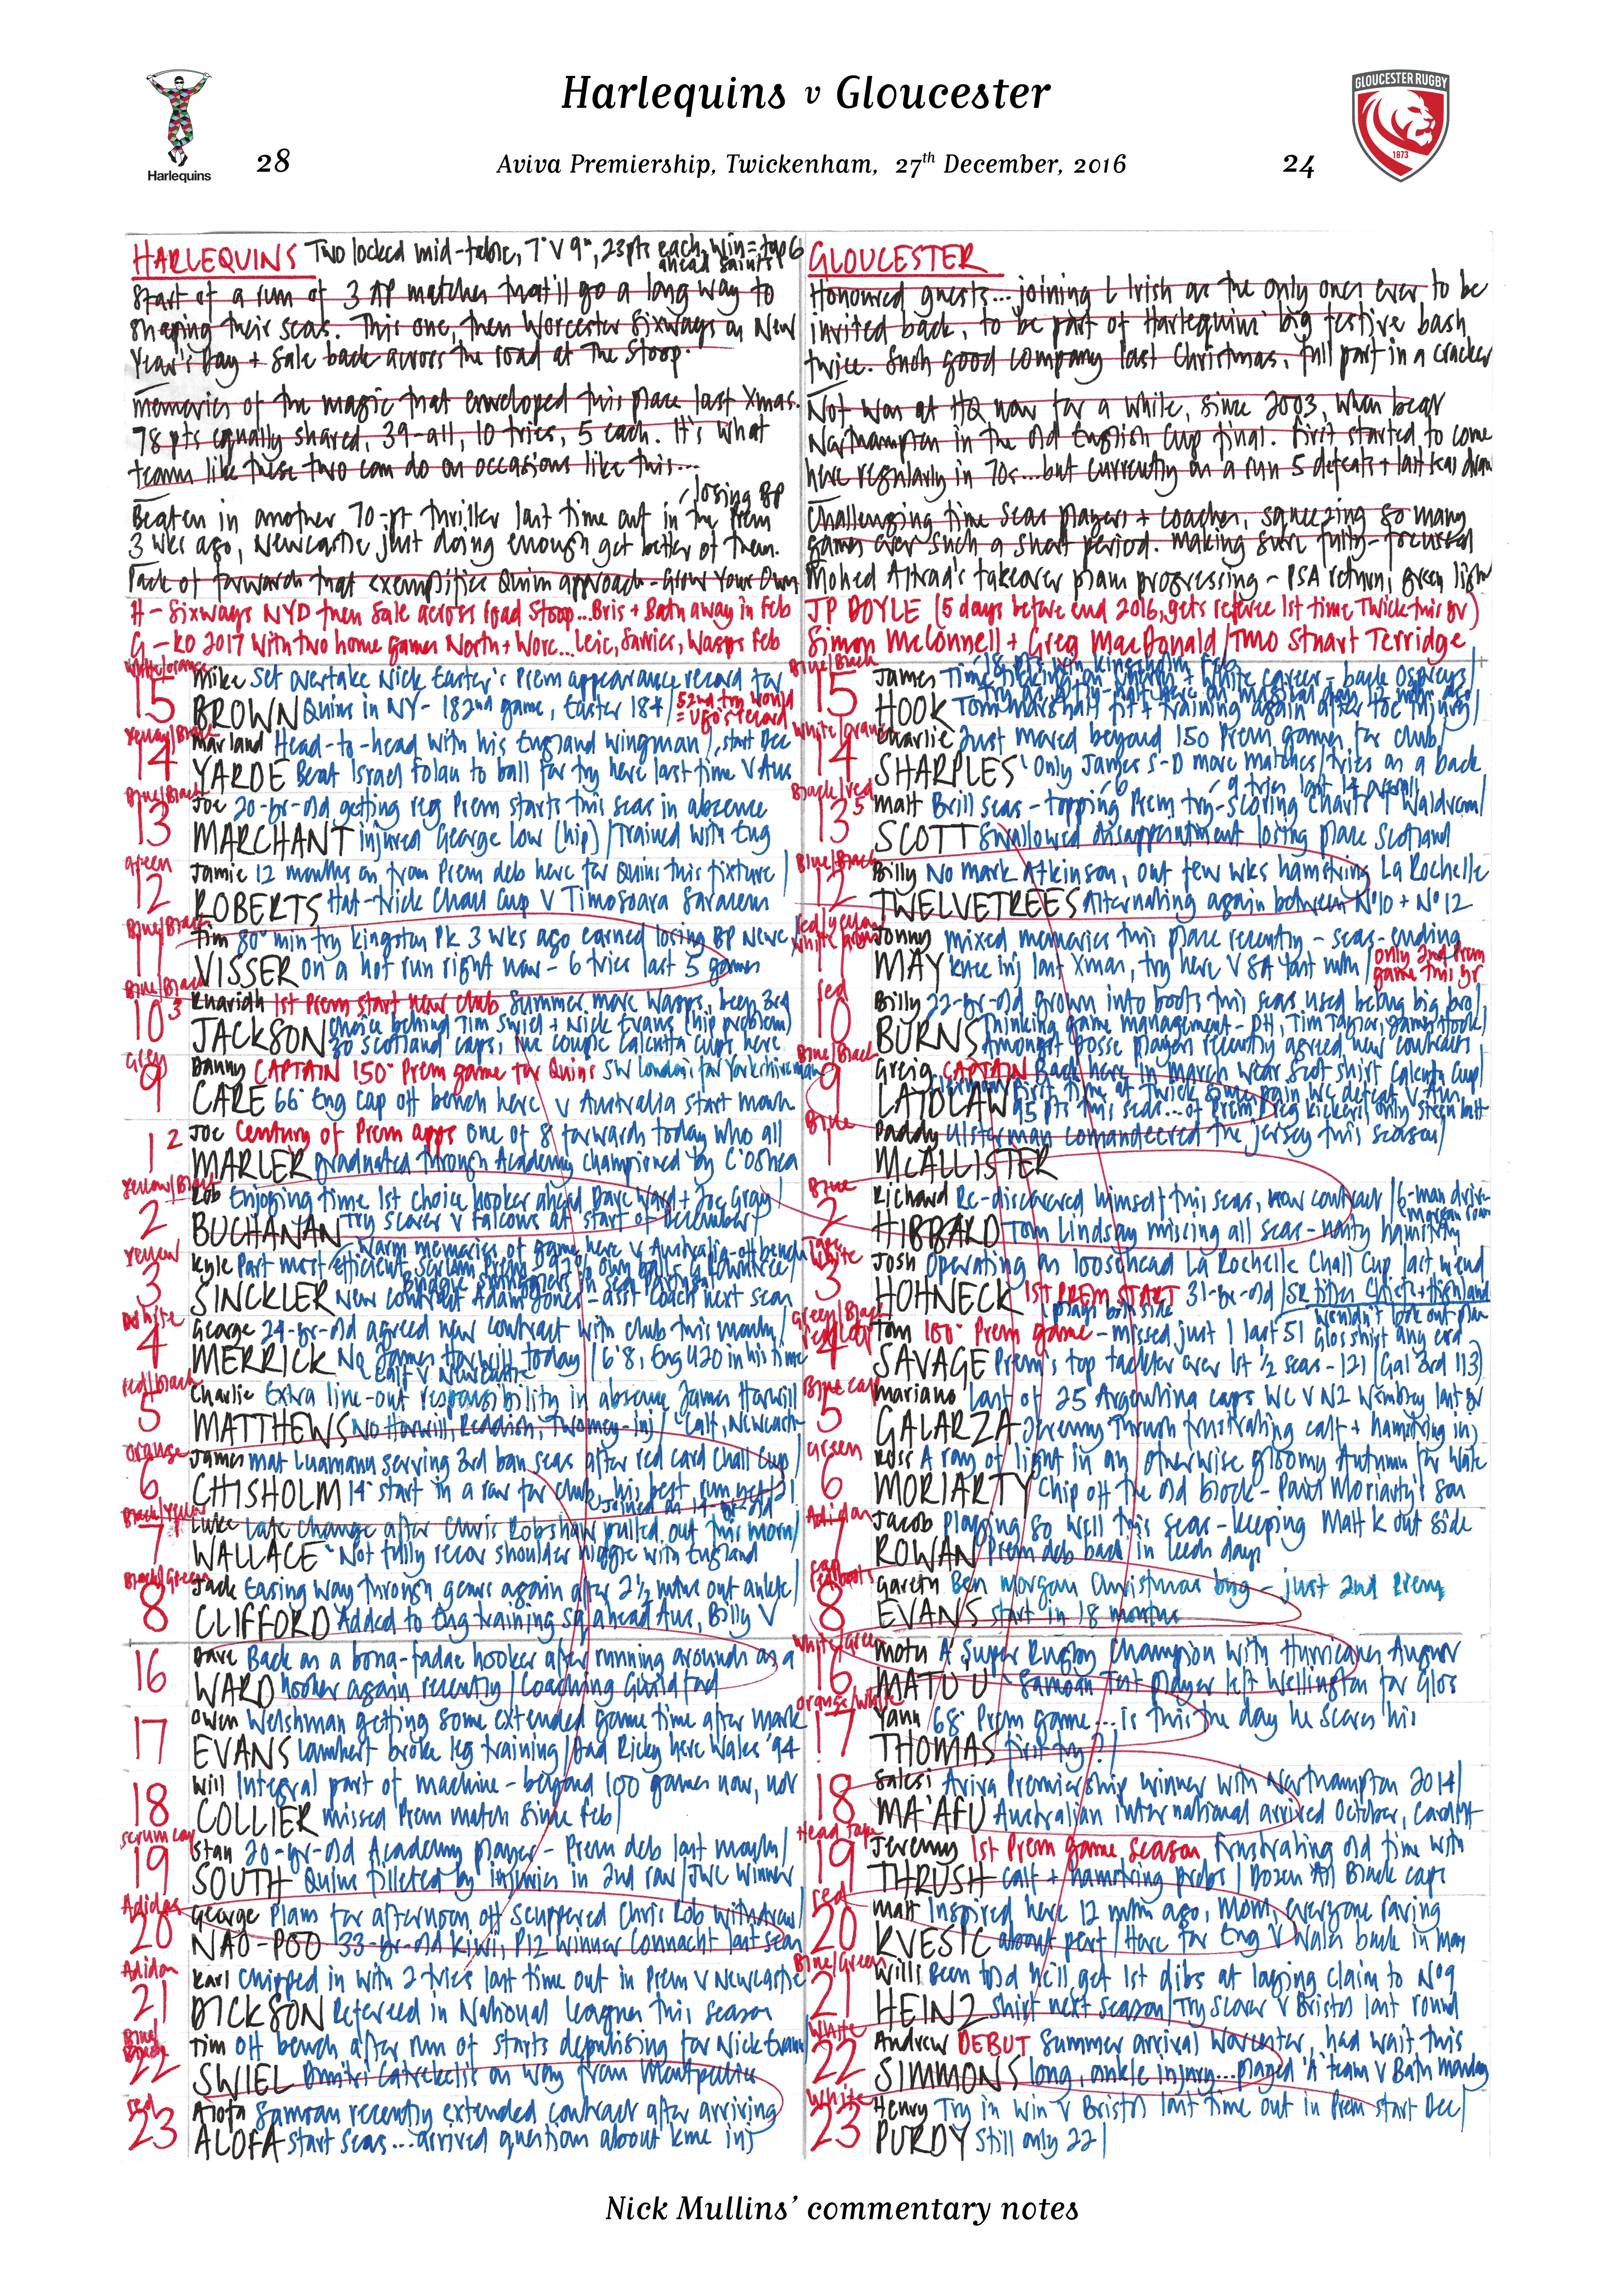 Harlequins v Gloucester
GLOUCESTER RUGBY
1873
Harlequins
28
Aviva Premiership, Twickenham, 27th December, 2016
24
HARLEQUINS Two locked mid-table, 7th v 9th, 23pts each, win = top 6
ahead Saints
Start of a run of 3 AP matches that'll go a long way to
shaping their seas. This one, then Worcester Sixways on New
Year's Day + Sale back across the road at The Stoop.
Memories of the magic that enveloped this place last Xmas.
78 pts equally shared, 39-all, 10 tries, 5 each. It's what
teams like these two can do on occasions like this...
losing BP
Beaten in another 70-pt thriller last time out in the Prem
3 wks ago, Newcastle just doing enough get better of them.
Pack of forwards that exemplifies Quins approach - Grow Your Own
H - Sixways NYD then Sale across road Stoop...Bris + Bath away in Feb
G - KO 2017 with two home games North + Worc...Leic, Sarries, Wasps Feb
GLOUCESTER
Honoured guests...joining L Irish as the only ones ever to be
invited back, to be part of Harlequins' big festive bash
twice. Such good company last Christmas, full part in a cracker
Not won at HQ now for a while, since 2003, when beat
Northampton in the old English Cup final. First started to come
here regularly in 70s...but currently on a run 5 defeats + last seas draw
Challenging time seas players + coaches, squeezing so many
games over such a short period. Making sure fully-focussed
Mohed Altrad's takeover plans progressing - PSA return, green light
JP DOYLE (5 days before end 2016, gets referee 1st time Twick this yr)
Simon McConnell + Greg MacDonald / TMO Stuart Terridge
White/orange
15 Mike Set overtake Nick Easter's Prem appearance record for
BROWN Quins in NY - 182nd game, Easter 184 / 52nd try would
= Ugo's record
Yellow/Black
14 Marland Head-to-head with his England wingman / start Dec
YARDE Beat Israel Folau to ball for try here last time v Aus
Blue/Black
13 Joe 20-yr-old getting reg Prem starts this seas in absence
MARCHANT injured George Low (hip) / Trained with Eng
green
12 Jamie 12 months on from Prem deb here for Quins this fixture /
ROBERTS Hat-trick Chall Cup v Timosoara Saracens
Blue/Black
11 Tim 80th min try Kingston Pk 3 wks ago earned losing BP Newc
VISSER on a hot run right now - 6 tries last 5 games
Blue/Black
10 3 Ruaridh 1st Prem start new club Summer move Wasps, been 3rd
JACKSON choice behind Tim Swiel + Nick Evans (hip problem)
30 Scotland caps, inc couple Calcutta Cups here
Grey
9 Danny CAPTAIN 150th Prem game for Quins SW London for Yorkshireman
CARE 66th Eng cap off bench here v Australia start month
1 2 Joe Century of Prem apps one of 8 forwards today who all
MARLER graduated through Academy championed by C O'Shea
Yellow/Black
2 Rob Enjoying time 1st choice hooker ahead Dave Ward + Joe Gray
BUCHANAN Try scorer v Falcons at start of December
Warm memories of game here v Australia - off bench
Yellow
3 Kyle Part most efficient scrum Prem 92% own balls
SINCKLER New contract Adam Jones - asst coach next seas
White
4 George 24-yr-old agreed new contract with club this month /
MERRICK No James Horwill today / 6'8, Eng U20 in his time
Calf v Newcastle
red/black
5 Charlie Extra line-out responsibility in absence James Horwill
MATTHEWS No Horwill, Reddish, Twomey - inj / Calf, Newcastle
orange
6 James Mat Luamanu serving 3rd ban seas after red card Chall Cup /
CHISHOLM 14th start in a row for club, his best run yet 21
Joined as 14-yr-old
Black/Yellow
7 Luke Late change after Chris Robshaw pulled out this morn /
WALLACE Not fully recov shoulder niggle with England
Black/Green
8 Jack Easing way through gears again after 2½ mths out ankle /
CLIFFORD Added to Eng training sq ahead Aus, Billy V
16 Dave Back as a bona-fadae hooker after running around as a
WARD hooker again recently / Coaching Guildford
17 Owen Welshman getting some extended game time after Mark
EVANS Lambert broke leg training / Dad Ricky here Wales '94
18 Will Integral part of machine - beyond 100 games now, not
COLLIER missed Prem match since Feb /
scrum cap
19 Stan 20-yr-old Academy player - Prem deb last month /
SOUTH Quins filleted by injuries in 2nd row / JWC winner
Adidas
20 George Plans for afternoon off scuppered Chris Rob withdraw /
NAO-POO 33-yr-old Kiwi, P12 winner Connacht last seas
Adidas
21 Karl Chipped in with 2 tries last time out in Prem v Newcastle
DICKSON Refereed in National Leagues this season
Blue/Black
22 Tim Off bench after run of starts deputising for Nick Evans
SWIEL Demitri Catrakilis on way from Montpellier
red
23 Alofa Samoan recently extended contract after arriving
ALOFA start seas...arrived question about knee inj
Blue/Black
15 James Time ticking on Cherry + White career - back Ospreys /
HOOK Tom Marshall fit + training again after toe injury /
White/orange
14 Charlie Just moved beyond 150 Prem games for club /
SHARPLES Only James S-D more matches/tries as a back
Black/red
13 5 Matt Brill seas - topping Prem try-scoring charts + Waldrom /
SCOTT Swallowed disappointment losing place Scotland
Blue/Black
12 Billy No Mark Atkinson, out few wks hamstring La Rochelle
TWELVETREES Alternating again between No10 + No12
red/yellow
11 Jonny mixed memories this place recently - seas-ending
MAY knee inj last Xmas, try here v SA last mth / only 2nd Prem
game this yr
red
10 Billy 22-yr-old grown into boots this seas used belong big bro /
BURNS Thinking game management - DH, Tim Taylor, James Hook /
Amongst posse players recently agreed new contracts
Blue/Black
9 Greig CAPTAIN Back here in March wear Scot shirt Calcutta Cup /
LAIDLAW First time at Twick since pain WC defeat v Aus
95 pts this seas...of Prem reg kickers only Steen bett
Blue
1 Paddy Ulsterman comandeered the jersey this season /
McALLISTER
Blue
2 Richard Re-discovered himself this seas, new contract / 6-man drive
HIBBARD Tom Lindsay missing all seas - nasty hamstring
Tape White
3 Josh Operating as loosehead La Rochelle Chall Cup last wend
HOHNECK 1st PREM START 31-yr-old / SR titles Chiefs + Highland
plays both side
Green/Black
4 Tom 100th Prem game - missed just 1 last 51
SAVAGE Prem's top tackler over 1st ½ seas - 121 (Gal 3rd 113)
Blue cap
5 Mariano Last of 25 Argentina caps WC v NZ Wembley last yr
GALARZA Jeremy Thrush frustrating calf + hamstring inj
Green
6 Ross A ray of light in an otherwise gloomy Autumn for Wales
MORIARTY Chip off the old block - Paul Moriarty's son
Adidas
7 Jacob Playing so well this seas - keeping Matt K out side
ROWAN Prem deb back in Leeds days
cap
red boots
8 Gareth Ben Morgan Christmas bug - just 2nd Prem
EVANS start in 18 months
White/Green
16 Motu A Super Rugby Champion with Hurricanes August
MATU'U Samoan Test player left Wellington for Glos
orange/white
17 Yann 68th Prem game...is this the day he scores his
THOMAS first try? /
18 Salesi Aviva Premiership winner with Northampton 2014 /
MA'AFU Australian international arrived October, Cardiff
Head tape
19 Jeremy 1st Prem game season frustrating old time with
THRUSH calf + hamstring probs / Dozen All Black caps
red
20 Matt Inspired here 12 mths ago, MoM, everyone raving
KVESIC about perf / Here for Eng v Wales back in May
Blue/Green
21 Willi Been told he'll get 1st dibs at laying claim to No9
HEINZ shirt next season / Try scorer v Bristol last round
White
22 Andrew DEBUT Summer arrival Worcester, had wait this
SIMMONS long, ankle injury...played 'A' team v Bath Monday
White
23 Henry Try in win v Bristol last time out in Prem start Dec /
PURDY Still only 22 /
Nick Mullins' commentary notes